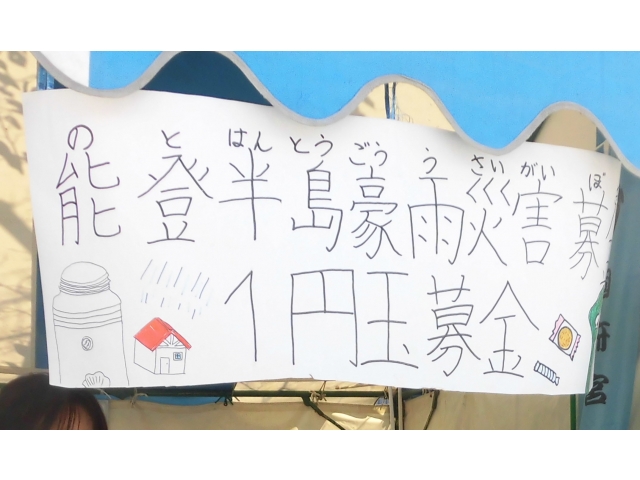 のとはんとうごううさいがいぼ
能登半島豪雨災害募
1円玉募金